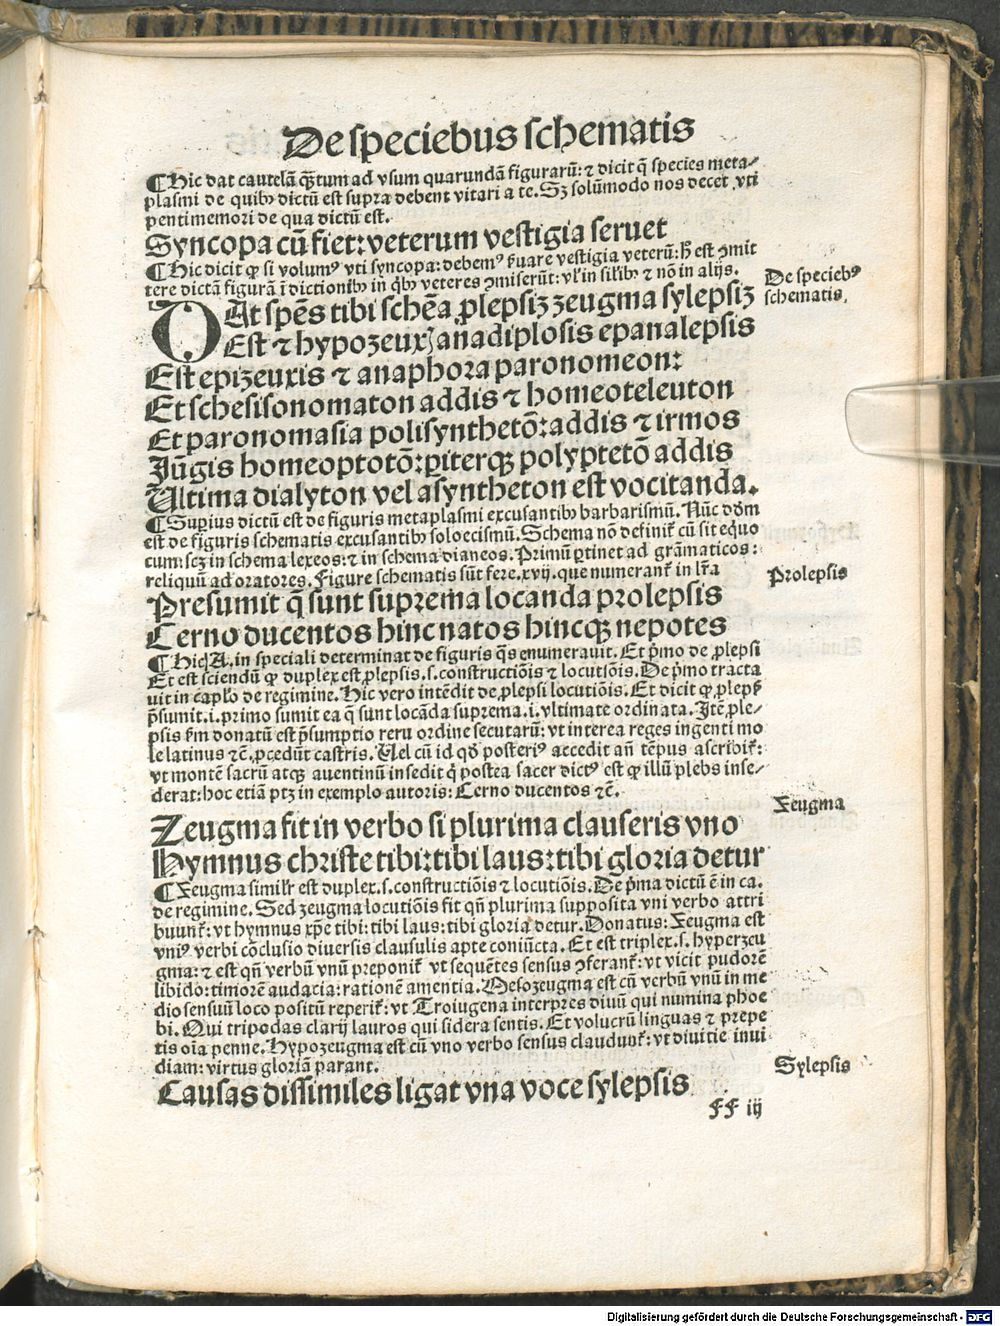 De speciebus schematis
¶Hic dat cautelã qȝtum ad vsum quarundã figurarũ: ⁊ dicit q̃ species meta-
plasmi de quibꝰ dictũ est supra debent vitari a te. Sȝ solũmodo nos decet vti
pentimemori de qua dictũ est.
Syncopa cũ fiet: veterum vestigia seruet
¶Hic dicit ꝙ si volumꝰ vti syncopa: debemꝰ ẜuare vestigia veterũ: hͦ est ꝯmit
tere dictã figurã ĩ dictionibꝰ in qͥbꝰ veteres ꝯmiserũt: vl' in sil'ibꝰ ⁊ nõ in alijs.
De speciebꝰ
schematis.
DAt spẽs tibi schẽa ꝓlepsiȝ zeugma sylepsiȝ
Est ⁊ hypozeuxȷ anadiplosis epanalepsis
Est epizeuxis ⁊ anaphora paronomeon:
Et schesisonomaton addis ⁊ homeoteleuton
Et paronomasia polisynthetõ: addis ⁊ irmos
Jũgis homeoptotõ: ꝑiterqꝫ polyptetõ addis
Ultima dialyton vel asyntheton est vocitanda.
¶Suꝑius dictũ est de figuris metaplasmi excusantibꝰ barbarismũ. Nũc dõm
est de figuris schematis excusantibꝰ soloecismũ. Schema nõ definit᷑ cũ sit equo
cum: scȝ in schema lexeos: ⁊ in schema dianeos. Primũ ꝑtinet ad grãmaticos:
reliquũ ad oratores. Figure schematis sũt fere .xvij. que numerant᷑ in lr̃a
Prolepsis
Presumit q̃ sunt suprema locanda prolepsis
Cerno ducentos hinc natos hincqꝫ nepotes
¶Hic A. in speciali determinat de figuris q̃s enumerauit. Et pͥmo de ꝓlepsi
Et est sciendũ ꝙ duplex est ꝓlepsis .s. constructiõis ⁊ locutiõis. De pͥmo tracta
uit in capl'o de regimine. Hic vero intẽdit de ꝓlepsi locutiõis. Et dicit ꝙ ꝓlepẜ
p̃sumit .i. primo sumit ea q̃ sunt locãda suprema .i. vltimate ordinata. Itẽ ꝓle-
psis ẜm donatũ est p̃sumptio rerũ ordine secutarũ: vt interea reges ingenti mo
le latinus ⁊c̃. ꝓcedũt castris. Vel cũ id qd̃ posteriꝰ accedit añ tẽpus ascribit᷑:
vt montẽ sacrũ atqꝫ auentinũ insedit q̃ postea sacer dictꝰ est ꝙ illũ plebs inse-
derat: hoc etiã ptȝ in exemplo autoris: Cerno ducentos ⁊c̃.
Zeugma
Zeugma fit in verbo si plurima clauseris vno
Hymnus christe tibi: tibi laus: tibi gloria detur
¶Zeugma simil'r est duplex .s. constructiõis ⁊ locutiõis. De pͥma dictũ ẽ in ca.
de regimine. Sed zeugma locutiõis fit qñ plurima supposita vni verbo attri
buunt᷑: vt hymnus xp̃e tibi: tibi laus: tibi gloria detur. Donatus: Zeugma est
vniꝰ verbi cõclusio diuersis clausulis apte coniũcta. Et est triplex .s. hyperzeu
gma: ⁊ est qñ verbũ vnũ preponit᷑ vt sequẽtes sensus ꝯferant᷑: vt vicit pudorẽ
libido: timorẽ audacia: rationẽ amentia. Mesozeugma est cũ verbũ vnũ in me
dio sensuũ loco positũ reperit᷑: vt Troiugena interpres diuũ qui numina phoe
bi. Qui tripodas clarij lauros qui sidera sentis. Et volucrũ linguas ⁊ prepe
tis oĩa penne. Hypozeugma est cũ vno verbo sensus claudunt᷑: vt diuitie inui
diam: virtus gloriã parant.
Sylepsis
Causas dissimiles ligat vna voce sylepsis
FF iij
Digitalisierung gefördert durch die Deutsche Forschungsgemeinschaft - DFG